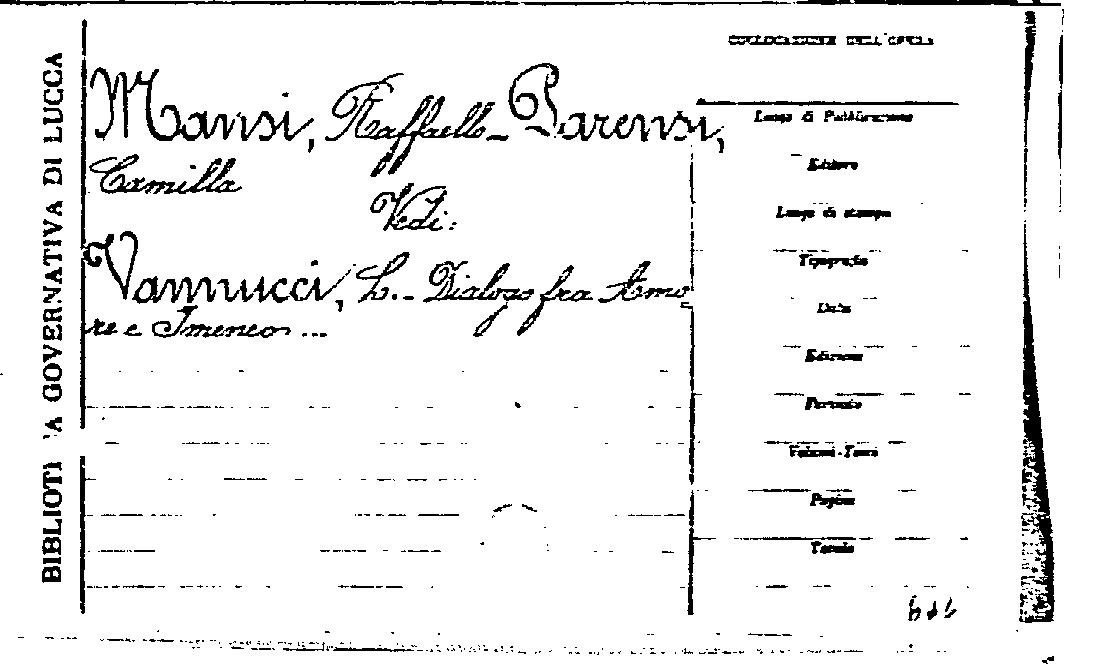 COLLOCAZIONE DELL'OPERA
Mansi, Raffaello - Parensi,
Camilla
Vedi:
Vannucci, L. - Dialogo fra Amo
re e Imeneo ...
BIBLIOTECA GOVERNATIVA DI LUCCA
Luogo di Pubblicazione
Editore
Luogo di stampa
Tipografia
Data
Edizione
Formato
Volumi-Tomi
Pagine
Tavole